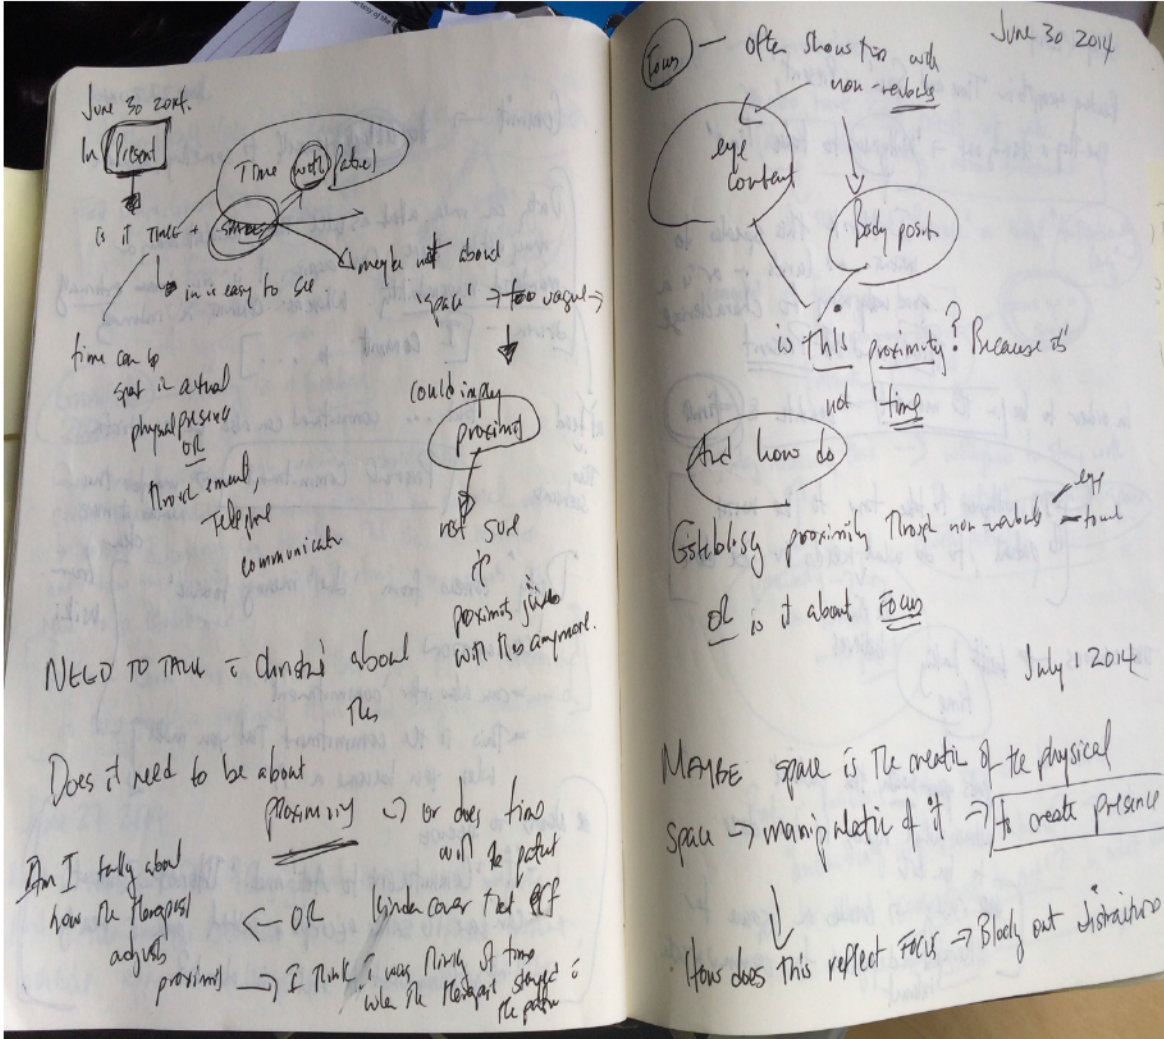 June 30 2014.
In Present
Time with patient
is it TIME + SPACE
in is easy to see
maybe not about
'space' → too vague →
time can be
spent in actual
physical presence
OR
through email,
telephone
communication
could imply
proximity
not sure
if
proximity jives
with this anymore.
NEED TO TALK c̄ Christine about
this
Does it need to be about
proximity → or does time
with the patient
kinda cover that off
OR
Am I talking about
how the therapist
adjusts
proximity → I think i was thinking of time
when the therapist stayed c̄
the patient
June 30 2014
Focus — often shows this with
non-verbals
eye
contact
Body position
is this proximity? Because it's
not time
And how do
G proximity through non-verbals
eye
touch
OR is it about FOCUS
July 1 2014
MAYBE space is the creation of the physical
space → manipulation of it → to create presence
How does this reflect FOCUS → Blocking out distractions